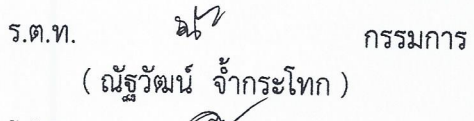 ร.ต.ท. กรรมการ
( ณัฐวัฒน์ จ้ำกระโทก )